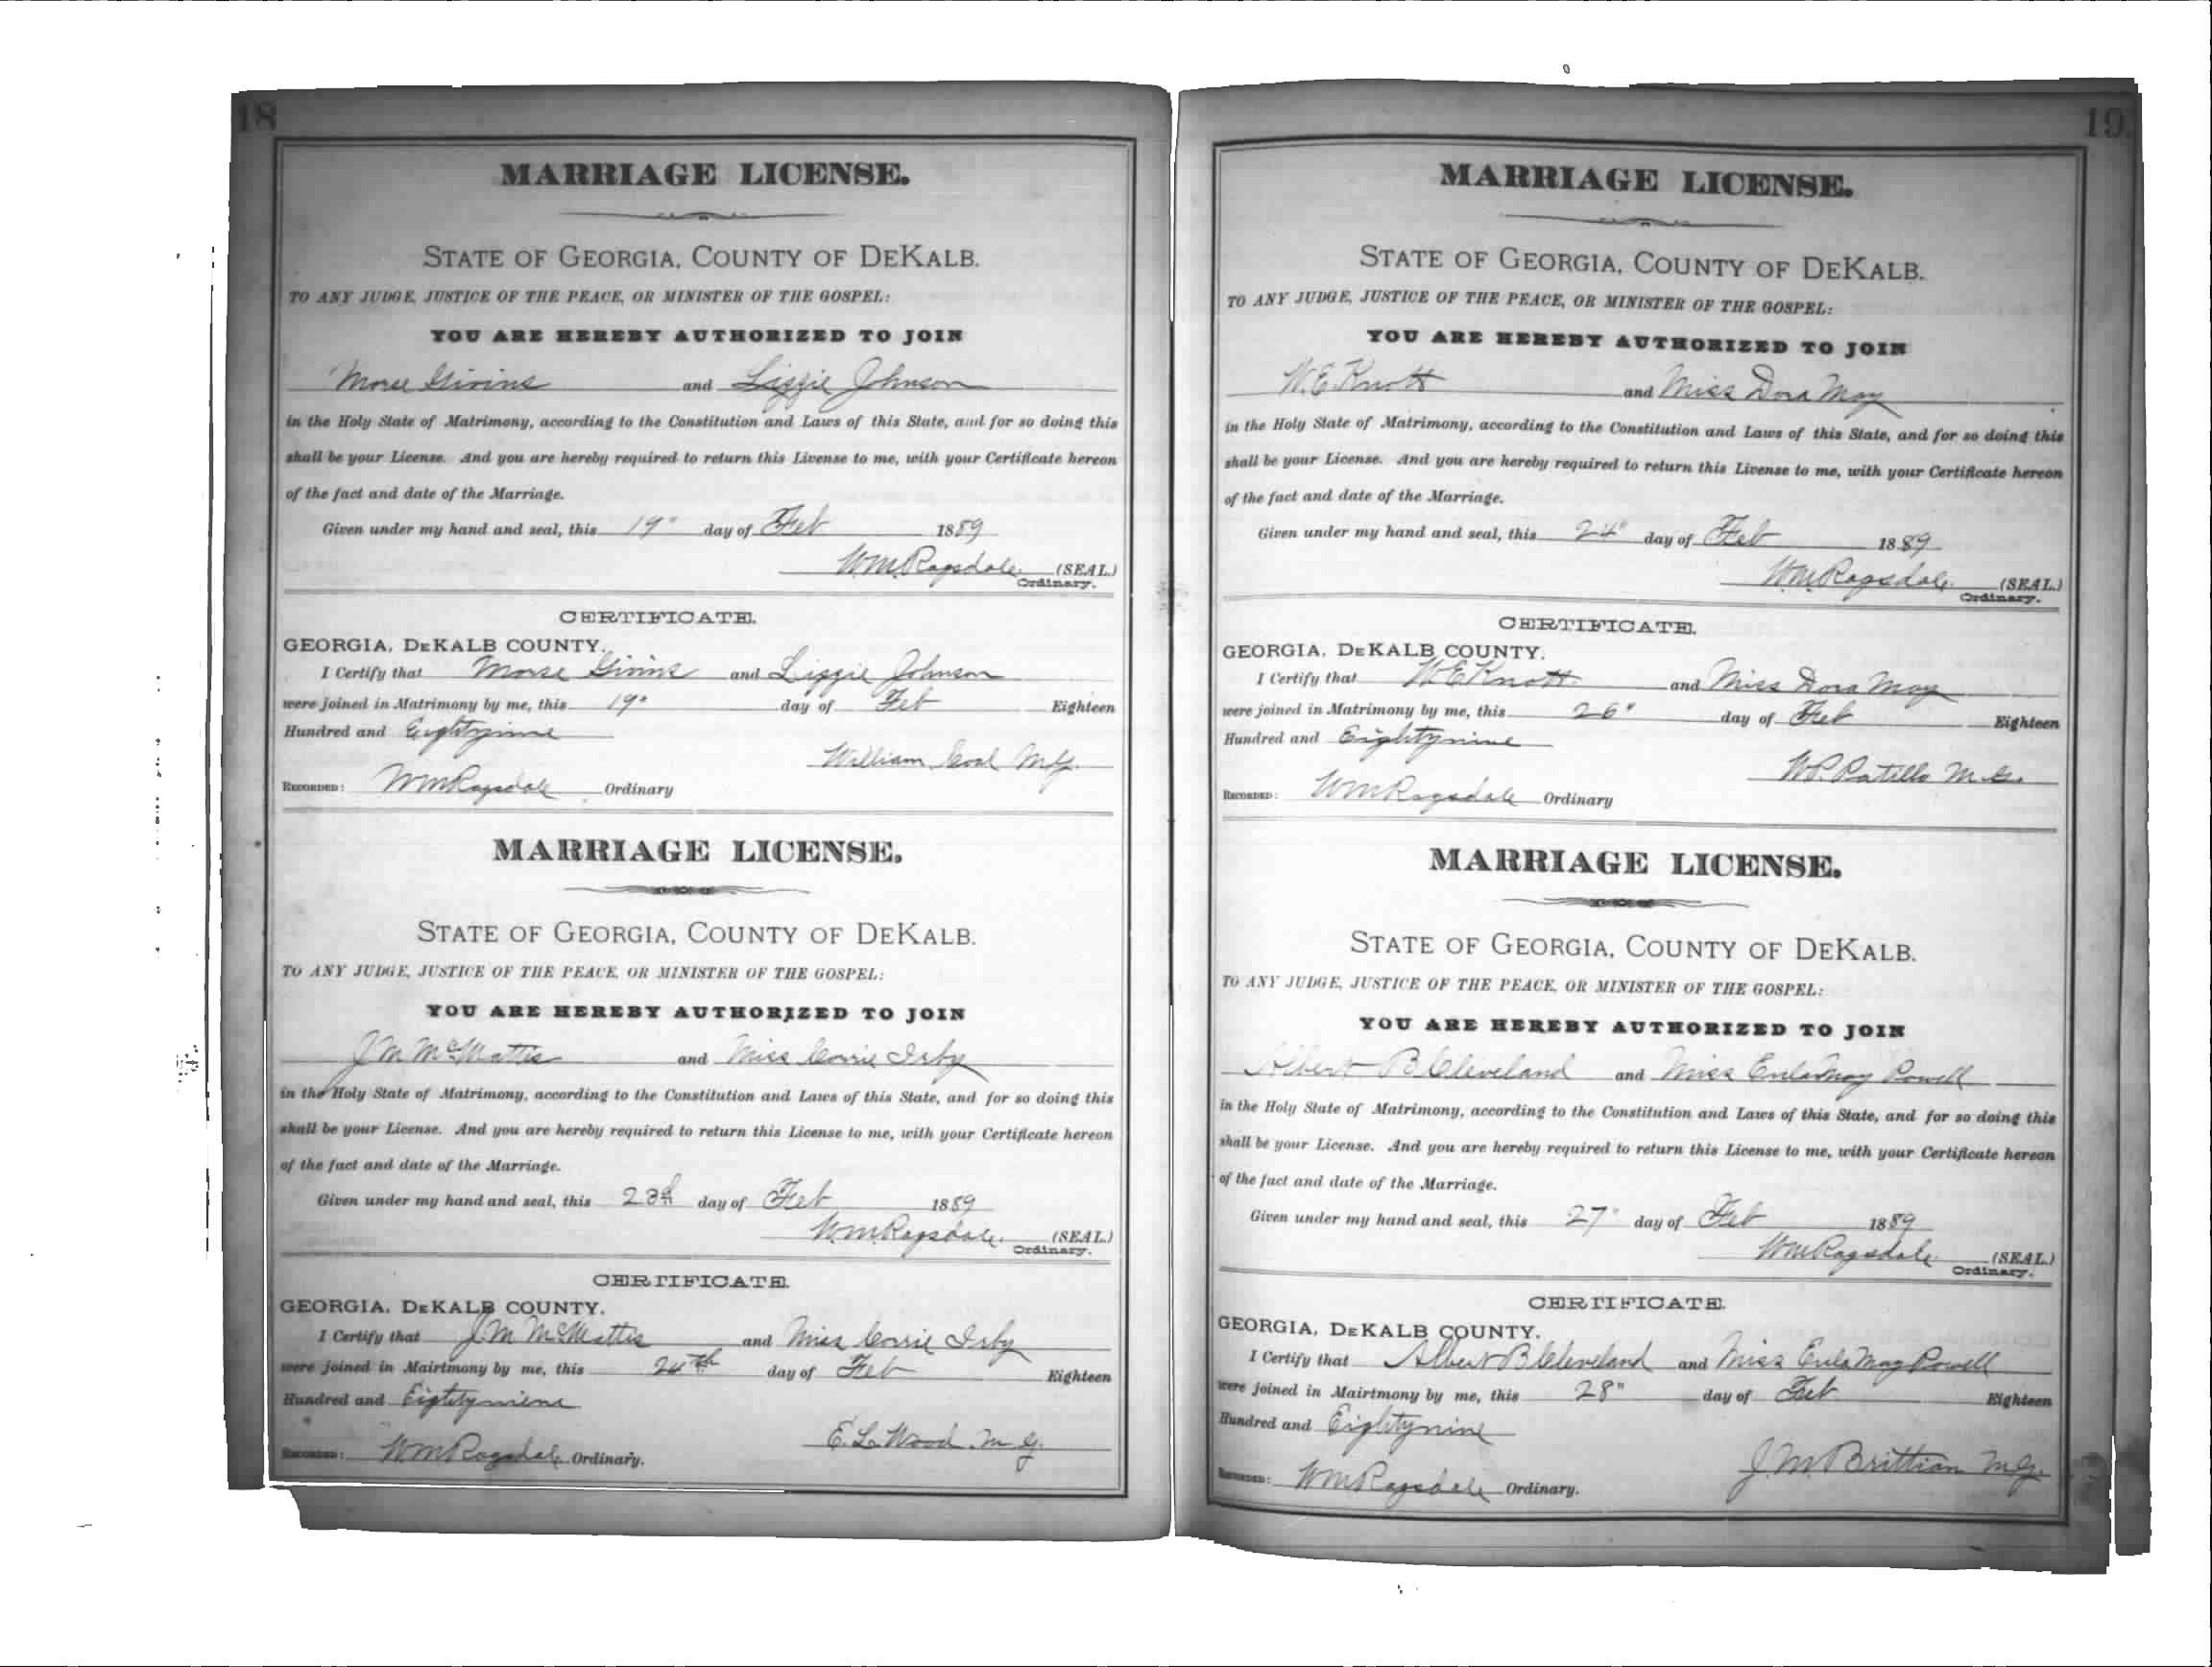 18
MARRIAGE LICENSE.
STATE OF GEORGIA, COUNTY OF DEKALB.
TO ANY JUDGE, JUSTICE OF THE PEACE, OR MINISTER OF THE GOSPEL:
YOU ARE HEREBY AUTHORIZED TO JOIN
Morse Givins and Lizzie Johnson
in the Holy State of Matrimony, according to the Constitution and Laws of this State, and for so doing this
shall be your License. And you are hereby required to return this License to me, with your Certificate hereon
of the fact and date of the Marriage.
Given under my hand and seal, this 19" day of Feb 1889
WM Ragsdale (SEAL.)
Ordinary.
CERTIFICATE.
GEORGIA, DEKALB COUNTY.
I Certify that Morse Givins and Lizzie Johnson
were joined in Matrimony by me, this 19" day of Feb Eighteen
Hundred and Eightynine
William Coal M.G.
RECORDED: WM Ragsdale Ordinary
MARRIAGE LICENSE.
STATE OF GEORGIA, COUNTY OF DEKALB.
TO ANY JUDGE, JUSTICE OF THE PEACE, OR MINISTER OF THE GOSPEL:
YOU ARE HEREBY AUTHORIZED TO JOIN
J M and Miss Corrie Irby
in the Holy State of Matrimony, according to the Constitution and Laws of this State, and for so doing this
shall be your License. And you are hereby required to return this License to me, with your Certificate hereon
of the fact and date of the Marriage.
Given under my hand and seal, this day of Feb 1889
WM Ragsdale (SEAL.)
Ordinary.
CERTIFICATE.
GEORGIA, DEKALB COUNTY.
I Certify that J M and Miss Corrie Irby
were joined in Mairtmony by me, this 24th day of Feb Eighteen
Hundred and Eightyniene
E. L. Wood M.G.
RECORDED: WM Ragsdale Ordinary.
19.
MARRIAGE LICENSE.
STATE OF GEORGIA, COUNTY OF DEKALB.
TO ANY JUDGE, JUSTICE OF THE PEACE, OR MINISTER OF THE GOSPEL:
YOU ARE HEREBY AUTHORIZED TO JOIN
W. E. Knott and Miss Dora May
in the Holy State of Matrimony, according to the Constitution and Laws of this State, and for so doing this
shall be your License. And you are hereby required to return this License to me, with your Certificate hereon
of the fact and date of the Marriage.
Given under my hand and seal, this 24" day of Feb 1889
WM Ragsdale (SEAL.)
Ordinary.
CERTIFICATE.
GEORGIA, DEKALB COUNTY.
I Certify that W E Knott and Miss Dora May
were joined in Matrimony by me, this 26" day of Feb Eighteen
Hundred and Eightynine
W.P. Patillo M.G.
RECORDED: WM Ragsdale Ordinary
MARRIAGE LICENSE.
STATE OF GEORGIA, COUNTY OF DEKALB.
TO ANY JUDGE, JUSTICE OF THE PEACE, OR MINISTER OF THE GOSPEL:
YOU ARE HEREBY AUTHORIZED TO JOIN
Albert B Cleveland and Miss Eula May Powell
in the Holy State of Matrimony, according to the Constitution and Laws of this State, and for so doing this
shall be your License. And you are hereby required to return this License to me, with your Certificate hereon
of the fact and date of the Marriage.
Given under my hand and seal, this 27" day of Feb 1889
WM Ragsdale (SEAL.)
Ordinary.
CERTIFICATE.
GEORGIA, DEKALB COUNTY.
I Certify that Albert B Cleveland and Miss Eula May Powell
were joined in Mairtmony by me, this 28" day of Feb Eighteen
Hundred and Eightynine
J. M. Brittian M.G.
RECORDED: WM Ragsdale Ordinary.